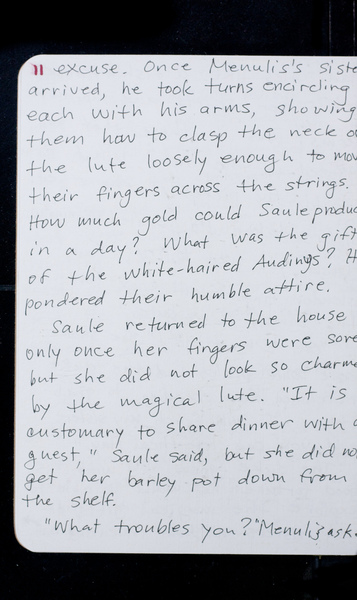 11 excuse. Once Menulis's siste
arrived, he took turns encircling
each with his arms, showing
them how to clasp the neck o
the lute loosely enough to mov
their fingers across the strings.
How much gold could Saule produc
in a day? What was the gift
of the white-haired Audinys? H
pondered their humble attire.
Saule returned to the house
only once her fingers were sore
but she did not look so charme
by the magical lute. "It is
customary to share dinner with a
guest," Saule said, but she did no
get her barley pot down from
the shelf.
"What troubles you?" Menulis ask